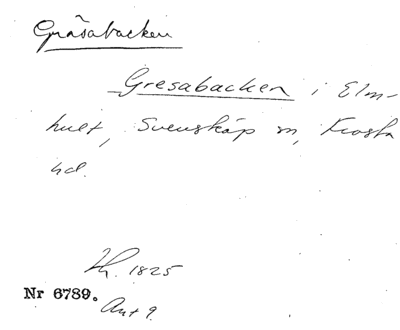 Gråsabacken
Gresabacken i Elm-
hult, Svensköp sn, Frosta
hd.
Lh. 1825
Nr 6789.
Ant 9